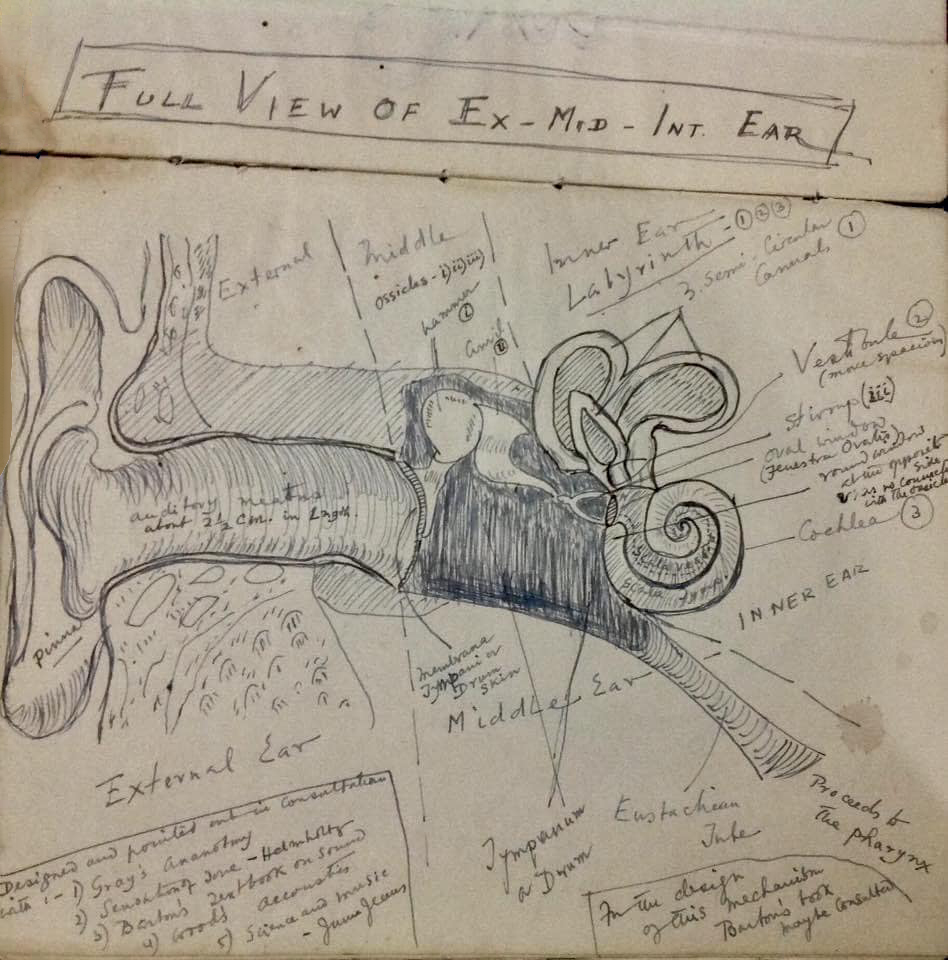 FULL VIEW OF EX-MID-INT. EAR
External
Middle
Ossicles - i) ii) iii)
hammer
(i)
anvil
(ii)
Inner Ear
Labyrinth - ① ② ③
3. Semi-Circular ①
Cannals
Vestibule ②
(more spacious)
Stirrup (iii)
oval window
(Fenestra Ovalis)
round window
at the opposite
side
as no connec
with the ossicles
Cochlea ③
INNER EAR
auditory meatus
about 2½ cm. in length.
Scala
Scala
Pinna
Membrana
Tympani or
Drum
Skin
Middle Ear
External Ear
Tympanum
or Drum
Eustachian
Tube
Proceeds to
the pharynx
Designed and pointed out in consultation
with :- 1) Gray's Ananotmy
2) Sensation of Tone - Helmholtz
3) Barton's Textbook on Sound
4) Wood's Accoustics
5) Science and Music
- James Jeans
In the design
of this mechanism
Barton's book
maybe consulted